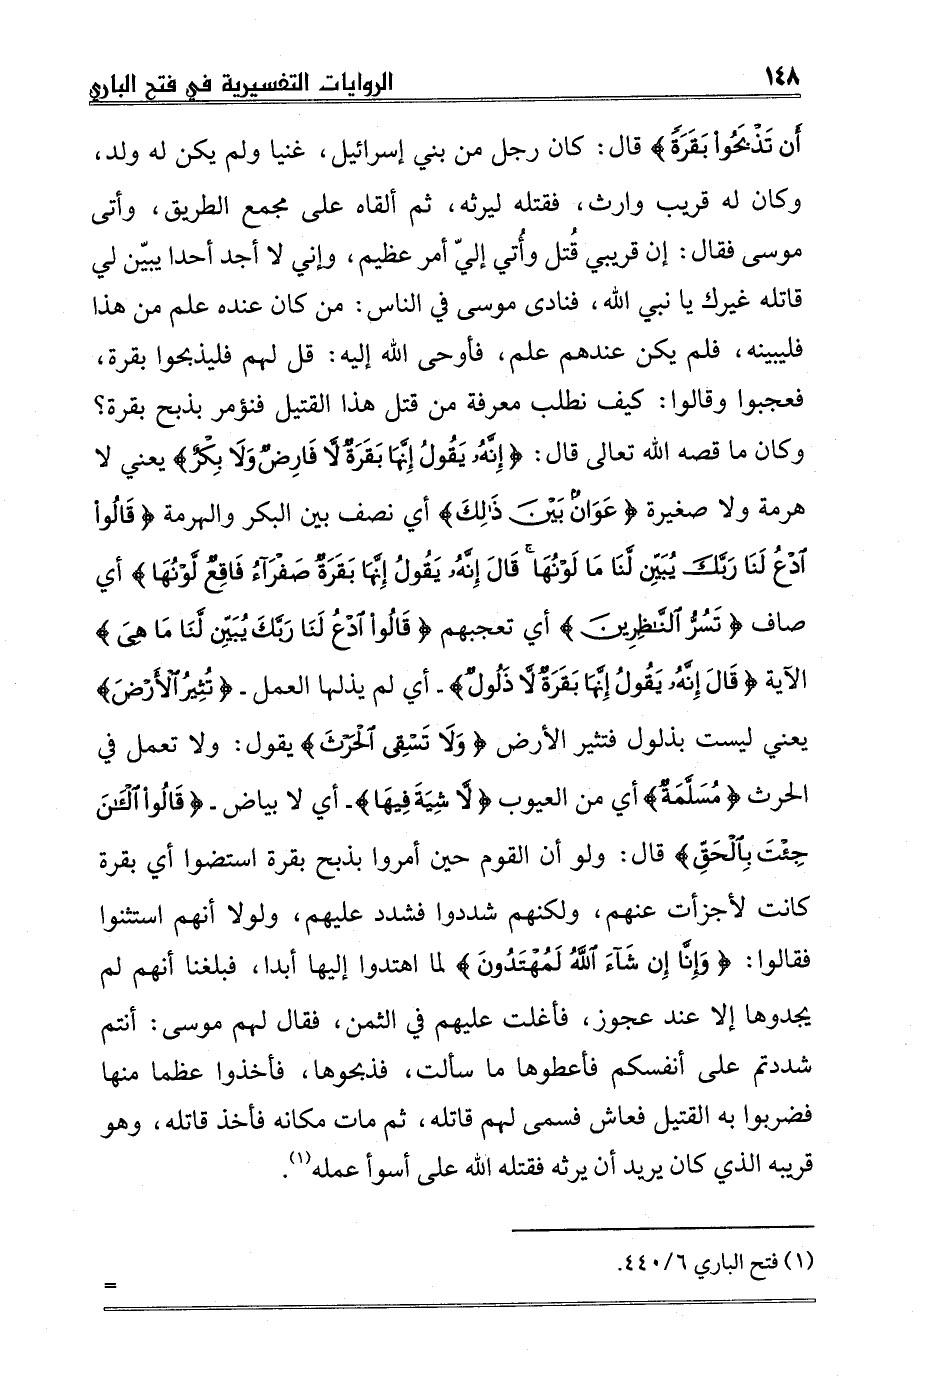 ١٤٨ الروايات التفسيرية في فتح الباري
أَن تَذْبَحُواْ بَقَرَةً﴾ قال: كان رجل من بني إسرائيل، غنيا ولم يكن له ولد،
وكان له قريب وارث، فقتله ليرثه، ثم ألقاه على مجمع الطريق، وأتى
موسى فقال: إن قريبي قُتل وأُتي إليّ أمر عظيم، وإني لا أجد أحدا يبيّن لي
قاتله غيرك يا نبي الله، فنادى موسى في الناس: من كان عنده علم من هذا
فليبينه، فلم يكن عندهم علم، فأوحى الله إليه: قل لهم فليذبحوا بقرة،
فعجبوا وقالوا: كيف نطلب معرفة من قتل هذا القتيل فنؤمر بذبح بقرة؟
وكان ما قصه الله تعالى قال: ﴿إِنَّهُۥ يَقُولُ إِنَّهَا بَقَرَةٌ لَّا فَارِضٌ وَلَا بِكْرٌ﴾ يعني لا
هرمة ولا صغيرة ﴿عَوَانٌۢ بَيْنَ ذَٰلِكَ﴾ أي نصف بين البكر والهرمة ﴿قَالُواْ
ٱدْعُ لَنَا رَبَّكَ يُبَيِّن لَّنَا مَا لَوْنُهَا ۚ قَالَ إِنَّهُۥ يَقُولُ إِنَّهَا بَقَرَةٌ صَفْرَآءُ فَاقِعٌ لَّوْنُهَا﴾ أي
صاف ﴿تَسُرُّ ٱلنَّٰظِرِينَ﴾ أي تعجبهم ﴿قَالُواْ ٱدْعُ لَنَا رَبَّكَ يُبَيِّن لَّنَا مَا هِىَ﴾
الآية ﴿قَالَ إِنَّهُۥ يَقُولُ إِنَّهَا بَقَرَةٌ لَّا ذَلُولٌ﴾ـ أي لم يذلها العمل ـ﴿تُثِيرُ ٱلْأَرْضَ﴾
يعني ليست بذلول فتثير الأرض ﴿وَلَا تَسْقِى ٱلْحَرْثَ﴾ يقول: ولا تعمل في
الحرث ﴿مُسَلَّمَةٌ﴾ أي من العيوب ﴿لَّا شِيَةَ فِيهَا﴾ـ أي لا بياض ـ﴿قَالُواْ ٱلْـَٰٔنَ
جِئْتَ بِٱلْحَقِّ﴾ قال: ولو أن القوم حين أمروا بذبح بقرة استضوا أي بقرة
كانت لأجزأت عنهم، ولكنهم شددوا فشدد عليهم، ولولا أنهم استثنوا
فقالوا: ﴿وَإِنَّا إِن شَآءَ ٱللَّهُ لَمُهْتَدُونَ﴾ لما اهتدوا إليها أبدا، فبلغنا أنهم لم
يجدوها إلا عند عجوز، فأغلت عليهم في الثمن، فقال لهم موسى: أنتم
شددتم على أنفسكم فأعطوها ما سألت، فذبحوها، فأخذوا عظما منها
فضربوا به القتيل فعاش فسمى لهم قاتله، ثم مات مكانه فأخذ قاتله، وهو
قريبه الذي كان يريد أن يرثه فقتله الله على أسوأ عمله(١).
(١) فتح الباري ٦/ ٤٤٠.
=